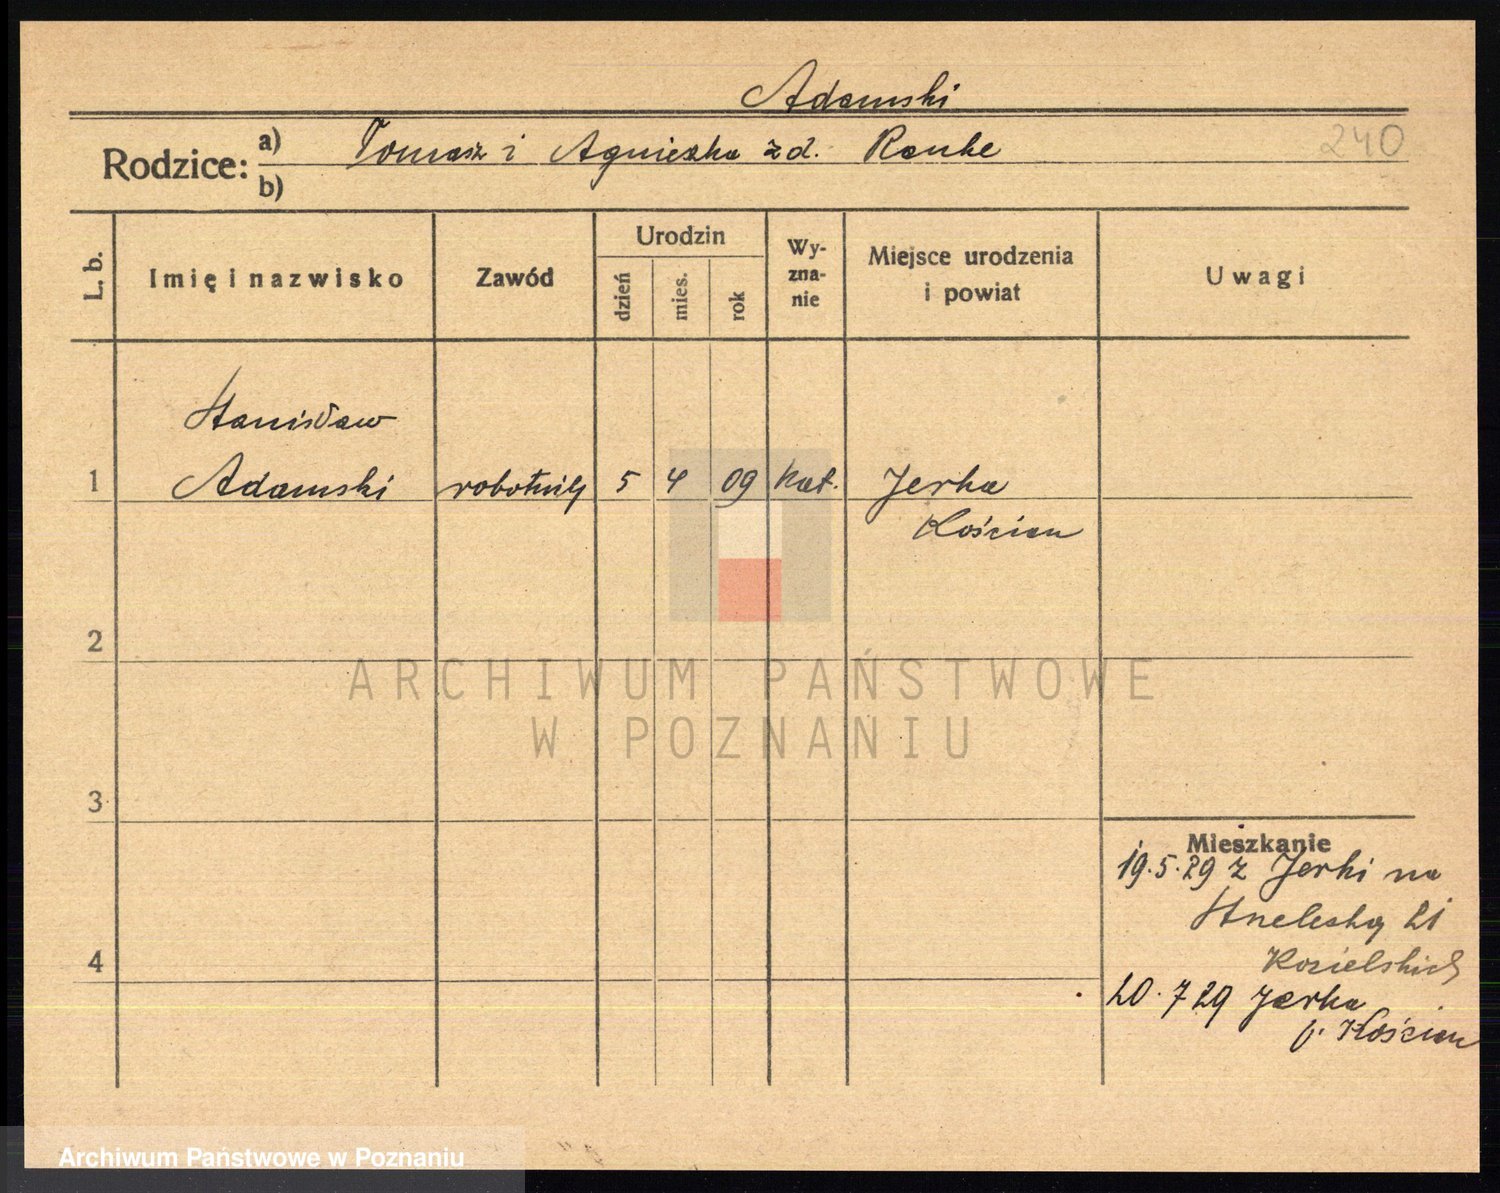 Adamski
Rodzice: a) Tomasz i Agnieszka z d. Ranke
240
b)
L. b.
Imię i nazwisko
Zawód
Urodzin
dzień
mies.
rok
Wy-
zna-
nie
Miejsce urodzenia
i powiat
Uwagi
Stanisław
1 Adamski robotnik 5 4 09 kat. Jerka
Kościan
2
ARCHIWUM PAŃSTWOWE
W POZNANIU
3
Mieszkanie
19.5.29 z Jerki na
Strzelecką 21
4
20.7 29 Jerka
p. Kościan
Archiwum Państwowe w Poznaniu